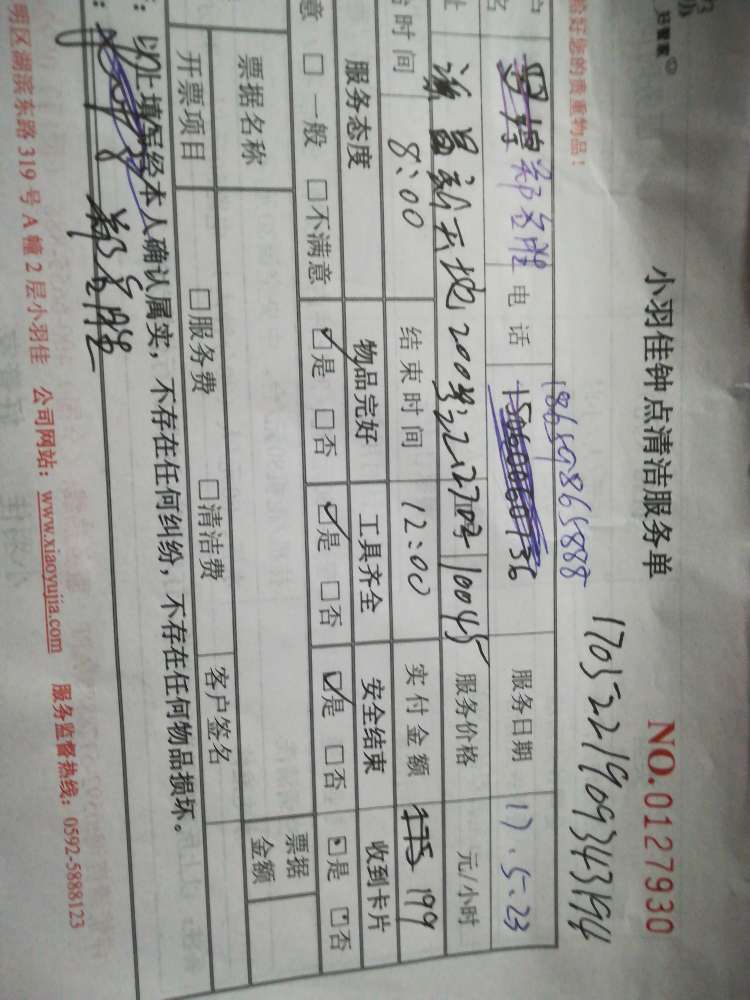 好管家
小羽佳钟点清洁服务单
NO.0127930
给好您的贵重物品！
17052219093431
户
名
郑
电话
18659865888
服务日期
17.5.23
址
新天地200号
10045
服务价格
元/小时
时间
8:00
结束时间
12:00
实付金额
175 199
服务态度
物品完好
工具齐全
安全结束
收到卡片
意 □ 一般 □不满意
☑是 □否
☑是 □否
☑是 □否
□是 □否
票据名称
票据
金额
开票项目
□服务费
□清洁费
客户签名
：以上填写经本人确认属实，不存在任何纠纷，不存在任何物品损坏。
明区湖滨东路319号A幢2层小羽佳 公司网站：www.xiaoyujia.com 服务监督热线：0592-5888123